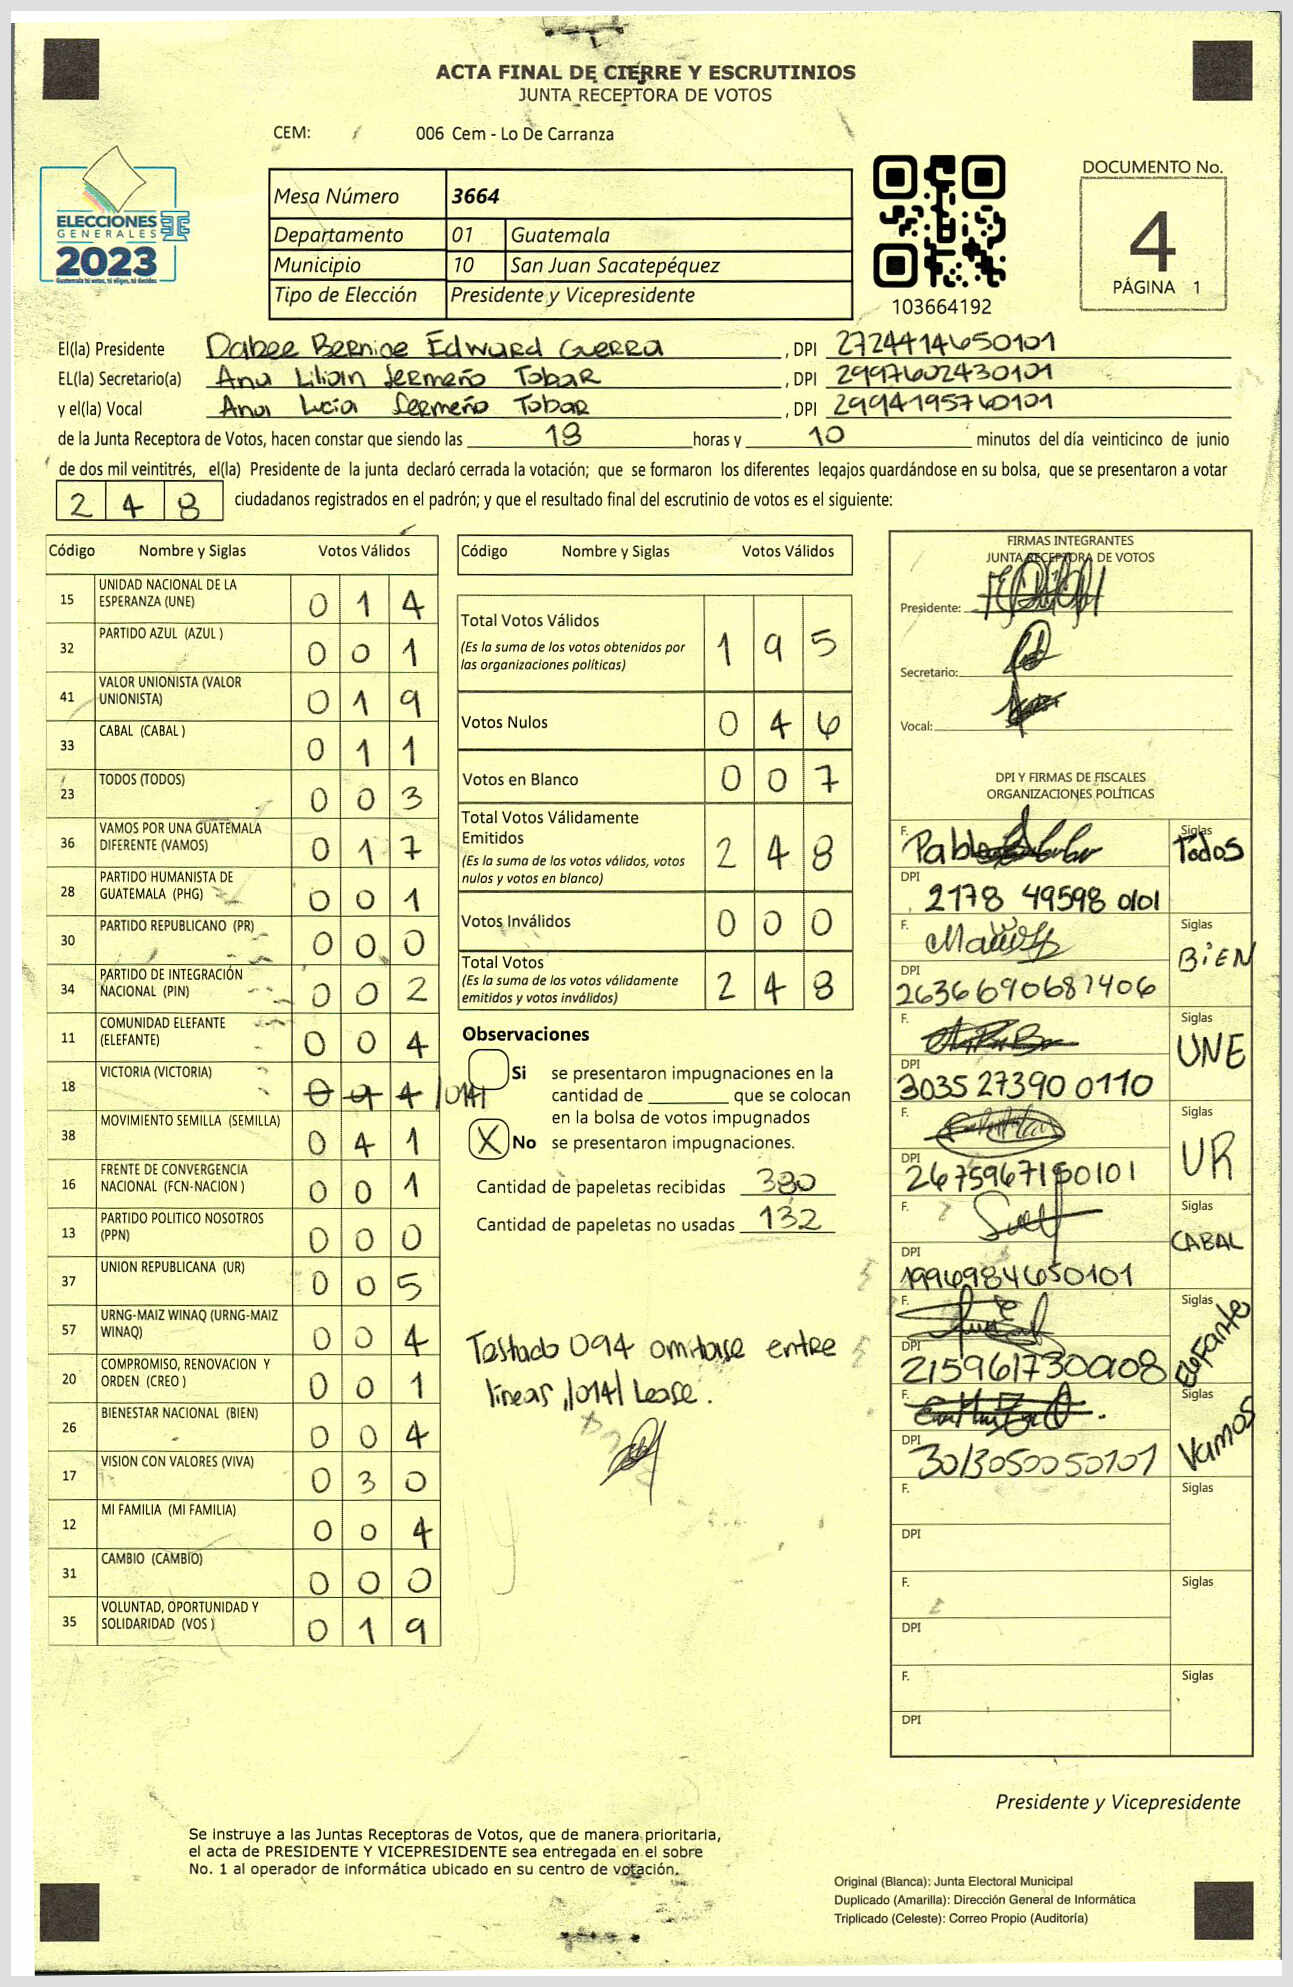 ACTA FINAL DE CIERRE Y ESCRUTINIOS
JUNTA RECEPTORA DE VOTOS
CEM: 006 Cem - Lo De Carranza
ELECCIONES
GENERALES
2023
Guatemala tú votas, tú eliges, tú decides
Mesa Número 3664
Departamento 01 Guatemala
Municipio 10 San Juan Sacatepéquez
Tipo de Elección Presidente y Vicepresidente
103664192
DOCUMENTO No.
4
PÁGINA 1
El(la) Presidente Dabee Bernice Edward Guerra, DPI 2724414650101
EL(la) Secretario(a) Ana Lilian Sermeño Tobar, DPI 2997602430101
y el(la) Vocal Ana Lucia Sermeño Tobar, DPI 2994195760101
de la Junta Receptora de Votos, hacen constar que siendo las 18 horas y 10 minutos del día veinticinco de junio
de dos mil veintitrés, el(la) Presidente de la junta declaró cerrada la votación; que se formaron los diferentes legajos guardándose en su bolsa, que se presentaron a votar
2 4 8 ciudadanos registrados en el padrón; y que el resultado final del escrutinio de votos es el siguiente:
Código Nombre y Siglas Votos Válidos
15 UNIDAD NACIONAL DE LA ESPERANZA (UNE) 0 1 4
32 PARTIDO AZUL (AZUL ) 0 0 1
41 VALOR UNIONISTA (VALOR UNIONISTA) 0 1 9
33 CABAL (CABAL ) 0 1 1
23 TODOS (TODOS) 0 0 3
36 VAMOS POR UNA GUATEMALA DIFERENTE (VAMOS) 0 1 7
28 PARTIDO HUMANISTA DE GUATEMALA (PHG) 0 0 1
30 PARTIDO REPUBLICANO (PR) 0 0 0
34 PARTIDO DE INTEGRACIÓN NACIONAL (PIN) 0 0 2
11 COMUNIDAD ELEFANTE (ELEFANTE) 0 0 4
18 VICTORIA (VICTORIA) 0 9 4 /014/
38 MOVIMIENTO SEMILLA (SEMILLA) 0 4 1
16 FRENTE DE CONVERGENCIA NACIONAL (FCN-NACION ) 0 0 1
13 PARTIDO POLITICO NOSOTROS (PPN) 0 0 0
37 UNION REPUBLICANA (UR) 0 0 5
57 URNG-MAIZ WINAQ (URNG-MAIZ WINAQ) 0 0 4
20 COMPROMISO, RENOVACION Y ORDEN (CREO ) 0 0 1
26 BIENESTAR NACIONAL (BIEN) 0 0 4
17 VISION CON VALORES (VIVA) 0 3 0
12 MI FAMILIA (MI FAMILIA) 0 0 4
31 CAMBIO (CAMBIO) 0 0 0
35 VOLUNTAD, OPORTUNIDAD Y SOLIDARIDAD (VOS ) 0 1 9
Código Nombre y Siglas Votos Válidos
Total Votos Válidos 1 9 5
(Es la suma de los votos obtenidos por
las organizaciones políticas)
Votos Nulos 0 4 6
Votos en Blanco 0 0 7
Total Votos Válidamente
Emitidos 2 4 8
(Es la suma de los votos válidos, votos
nulos y votos en blanco)
Votos Inválidos 0 0 0
Total Votos 2 4 8
(Es la suma de los votos válidamente
emitidos y votos inválidos)
Observaciones
Si se presentaron impugnaciones en la
cantidad de ________ que se colocan
en la bolsa de votos impugnados
X No se presentaron impugnaciones.
Cantidad de papeletas recibidas 380
Cantidad de papeletas no usadas 132
Testado 094 omitase entre
lineas /014/ Lease.
FIRMAS INTEGRANTES
JUNTA RECEPTORA DE VOTOS
Presidente:
Secretario:
Vocal:
DPI Y FIRMAS DE FISCALES
ORGANIZACIONES POLÍTICAS
F. Pablo Siglas Todos
DPI 2178 49598 0101
F. Siglas BiEN
DPI 2636690687406
F. Siglas UNE
DPI 3035 27390 0110
F. Siglas UR
DPI 2675967150101
F. Siglas CABAL
DPI 1996984650101
F. Siglas Elefante
DPI
F. Siglas Vamos
DPI 3013050050101
F. Siglas
DPI
F. Siglas
DPI
F. Siglas
DPI
Presidente y Vicepresidente
Se instruye a las Juntas Receptoras de Votos, que de manera prioritaria,
el acta de PRESIDENTE Y VICEPRESIDENTE sea entregada en el sobre
No. 1 al operador de informática ubicado en su centro de votación.
Original (Blanca): Junta Electoral Municipal
Duplicado (Amarilla): Dirección General de Informática
Triplicado (Celeste): Correo Propio (Auditoría)